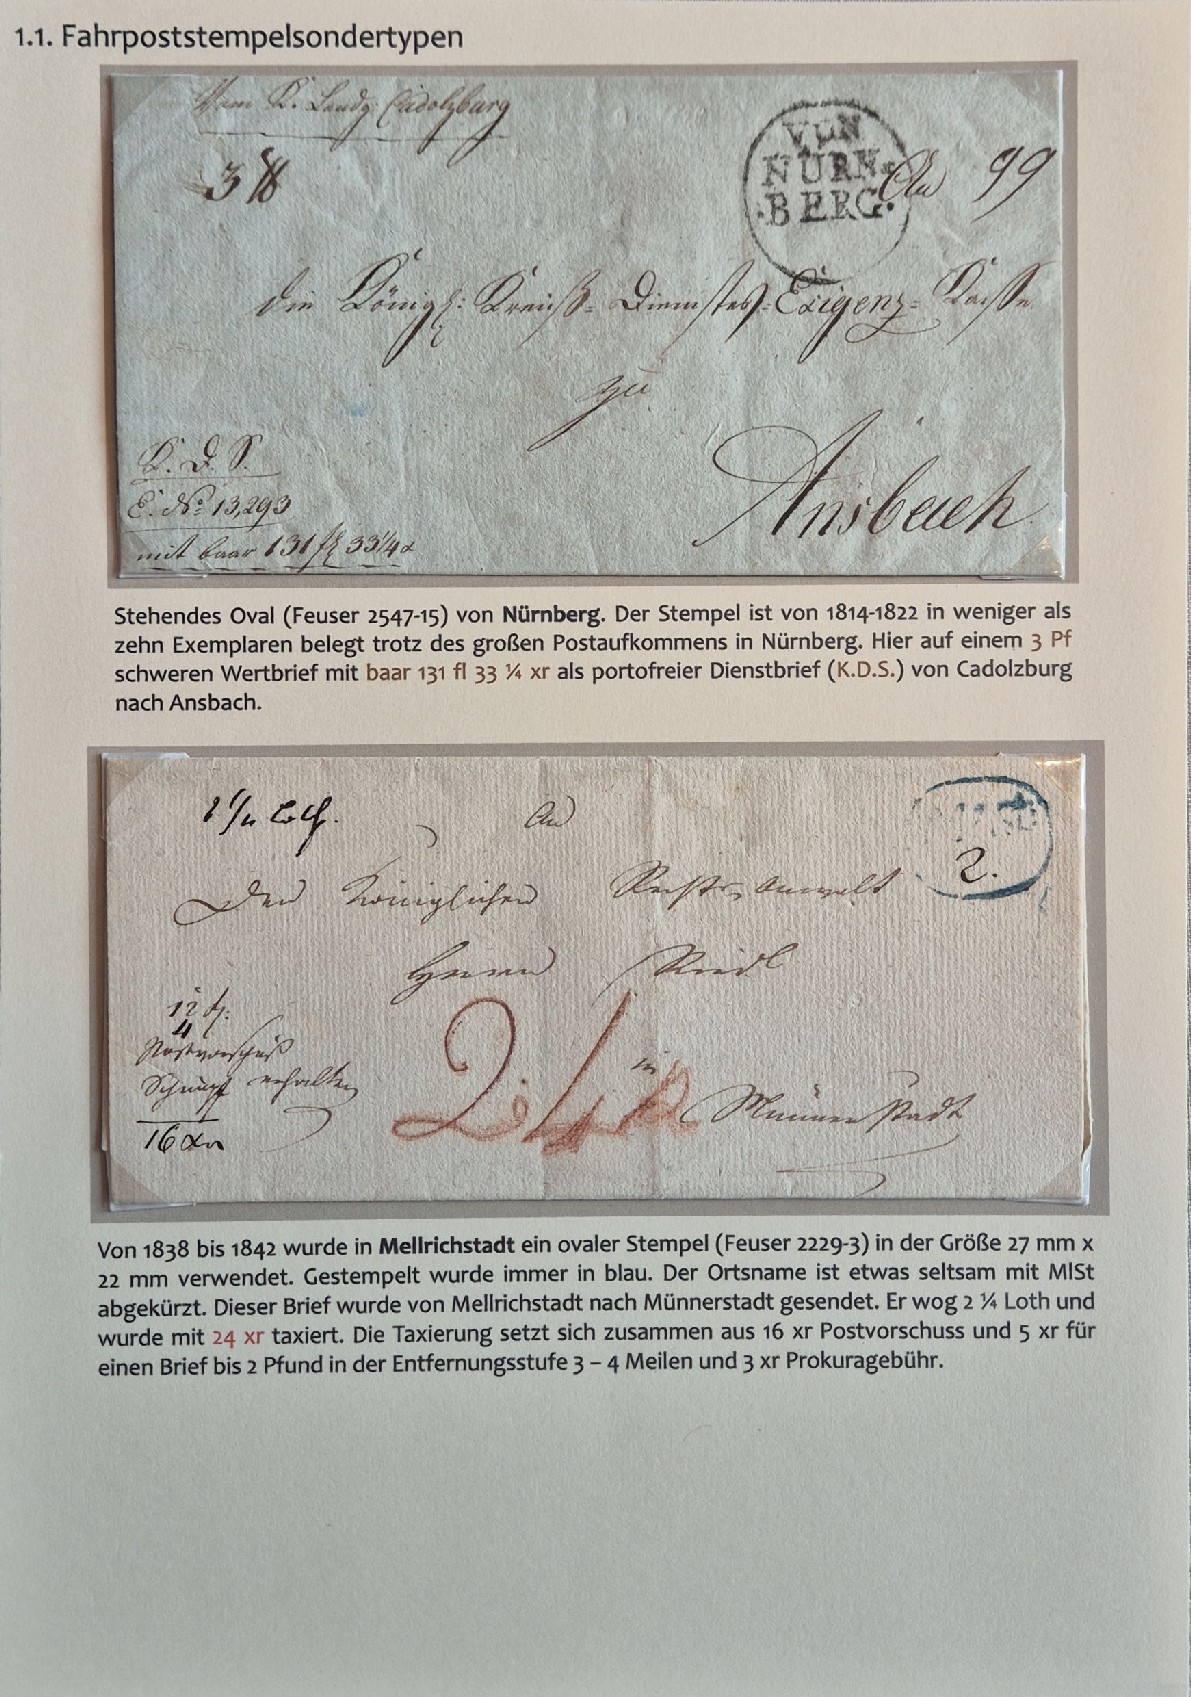 1.1. Fahrpoststempelsondertypen
Vom K. Landg: Cadolzburg
3 ℔
VON
NÜRN-
.BERG.
An 99
die Königl: Kreiß-Dienstes-Exigenz-Kasse
zu
Ansbach
K. D. S.
E. No: 13,293
mit baar 131 fl 33¼ x
Stehendes Oval (Feuser 2547-15) von Nürnberg. Der Stempel ist von 1814-1822 in weniger als
zehn Exemplaren belegt trotz des großen Postaufkommens in Nürnberg. Hier auf einem 3 Pf
schweren Wertbrief mit baar 131 fl 33 ¼ xr als portofreier Dienstbrief (K.D.S.) von Cadolzburg
nach Ansbach.
2 ¼ Loth.
An
2.
Den Königlichen Rechts Anwalt
Herrn Riedl
12
4
Postvorschuß
erhalten
16 xr
24
in
Münnerstadt
Von 1838 bis 1842 wurde in Mellrichstadt ein ovaler Stempel (Feuser 2229-3) in der Größe 27 mm x
22 mm verwendet. Gestempelt wurde immer in blau. Der Ortsname ist etwas seltsam mit MlSt
abgekürzt. Dieser Brief wurde von Mellrichstadt nach Münnerstadt gesendet. Er wog 2 ¼ Loth und
wurde mit 24 xr taxiert. Die Taxierung setzt sich zusammen aus 16 xr Postvorschuss und 5 xr für
einen Brief bis 2 Pfund in der Entfernungsstufe 3 – 4 Meilen und 3 xr Prokuragebühr.